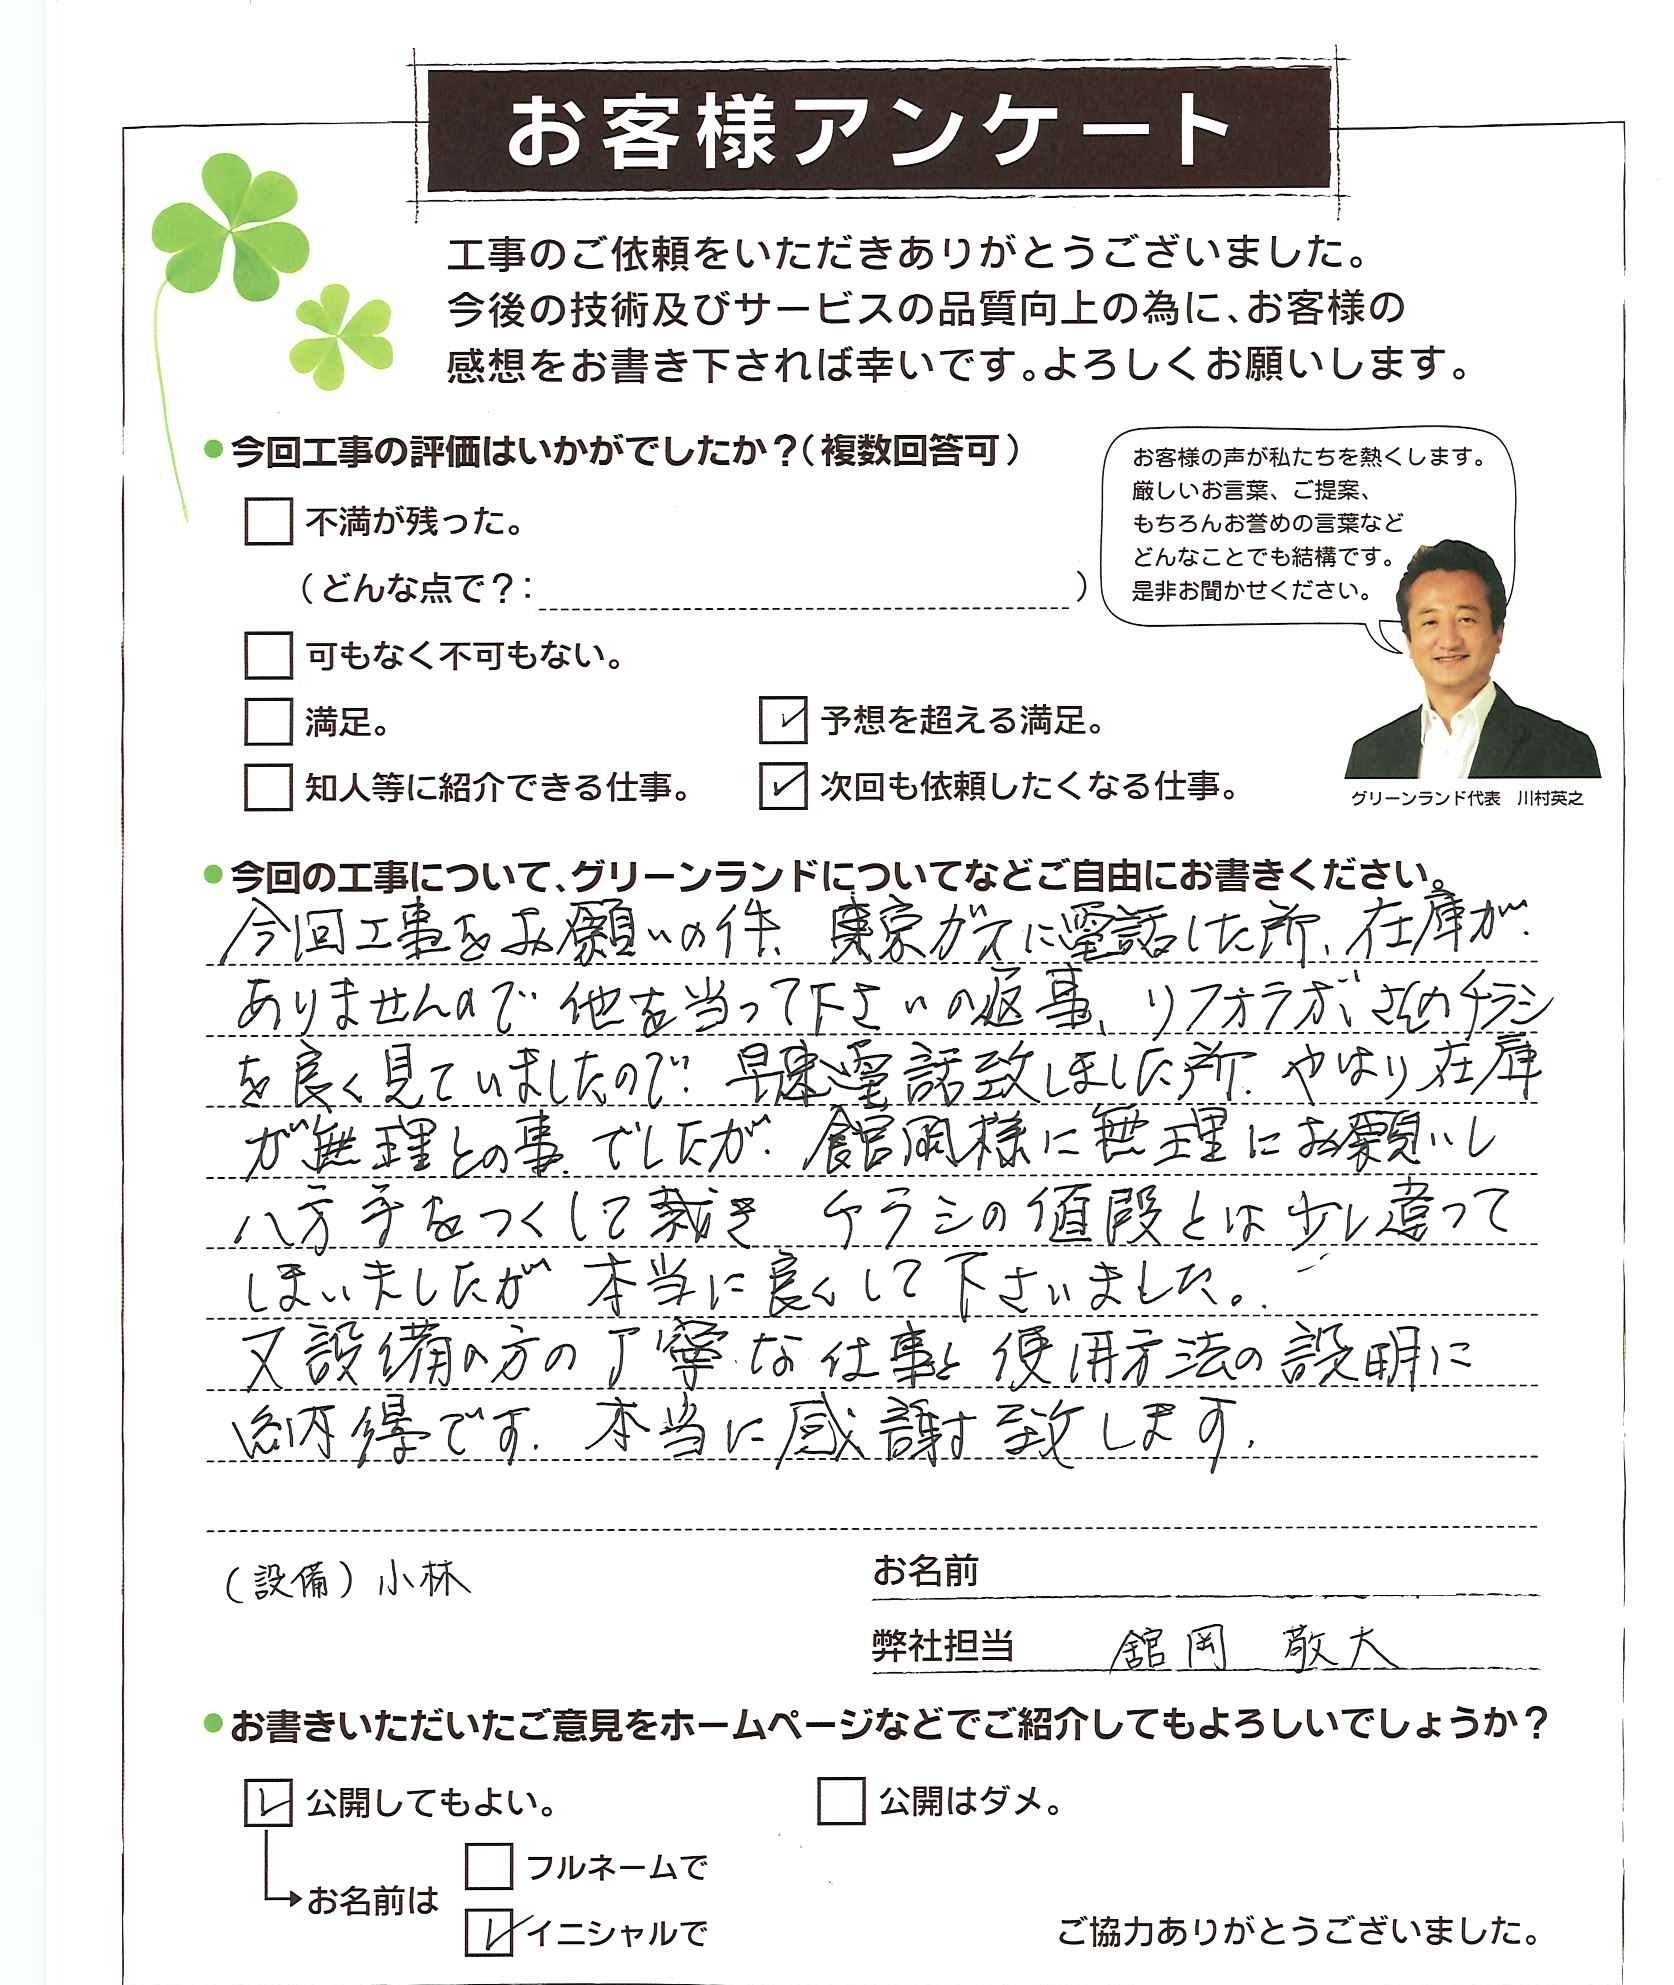 お客様アンケート
工事のご依頼をいただきありがとうございました。
今後の技術及びサービスの品質向上の為に、お客様の
感想をお書き下されば幸いです。よろしくお願いします。
今回工事の評価はいかがでしたか？(複数回答可)
お客様の声が私たちを熱くします。
厳しいお言葉、ご提案、
もちろんお誉めの言葉など
どんなことでも結構です。
是非お聞かせください。
不満が残った。
(どんな点で？: )
可もなく不可もない。
満足。
予想を超える満足。
知人等に紹介できる仕事。
次回も依頼したくなる仕事。
グリーンランド代表 川村英之
今回の工事について、グリーンランドについてなどご自由にお書きください。
今回工事をお願いの件、東京ガスに電話した所、在庫が
ありませんので他を当って下さいの返事、リフォラボさんのチラシ
を良く見ていましたので、早速電話致しました所、やはり在庫
が無理との事でしたが、舘岡様に無理にお願いし
八方手をつくして裁き チラシの値段とは少し違って
しまいましたが 本当に良くして下さいました。
又設備の方の丁寧な仕事と使用方法の説明に
納得です。本当に感謝致します。
(設備) 小林
お名前
弊社担当 舘岡 敬大
お書きいただいたご意見をホームページなどでご紹介してもよろしいでしょうか？
公開してもよい。
公開はダメ。
フルネームで
お名前は
イニシャルで
ご協力ありがとうございました。